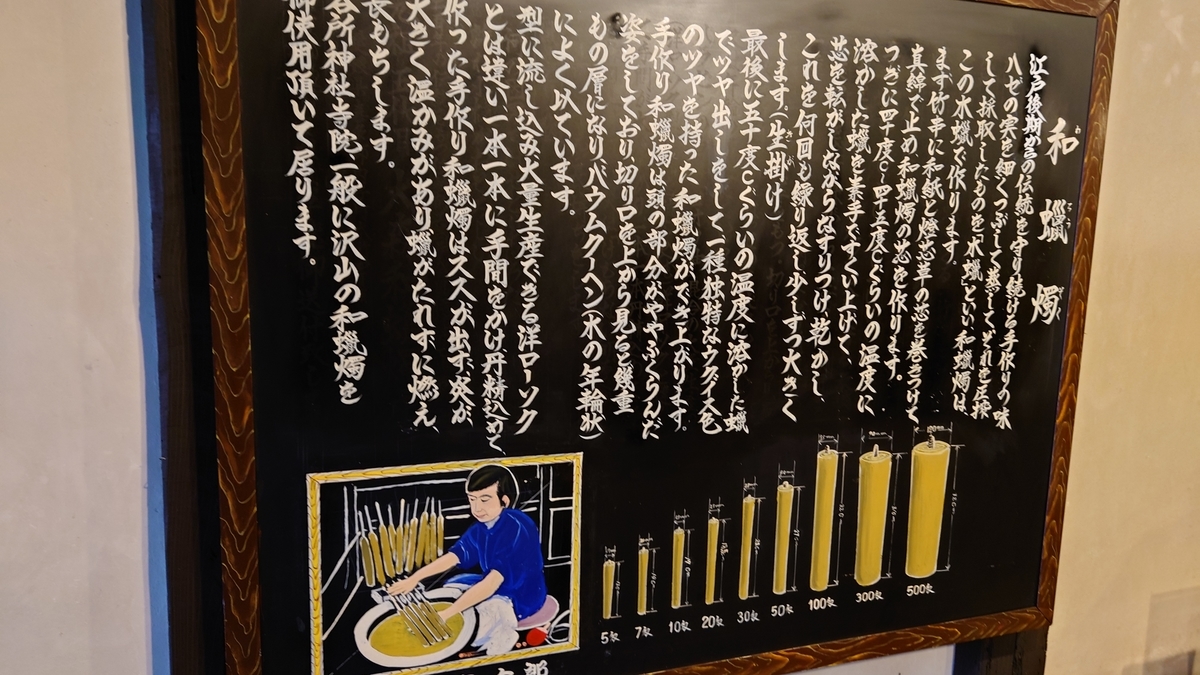 和蠟燭
江戸後期からの伝統を守り続ける手作りの味
ハゼの実を細くつぶして蒸してそれを圧搾
して採取したものを木蠟といい和蠟燭は
この木蠟で作ります。
まず竹串に和紙と燈芯草の芯を巻きつけて
真綿で止め和蠟燭の芯を作ります。
つぎに四十度C〜四十五度Cぐらいの温度に
溶かした蠟を素手ですくい上げて、
芯を転がしながらなすりつけ乾かし
これを何回も繰り返し少しずつ大きく
します。(生掛け)
最後に五十度Cぐらいの温度に溶かした蠟
でツヤ出しをして一種独特なウグイス色
のツヤを持った和蠟燭ができ上がります。
手作り和蠟燭は頭の部分がややふくらんだ
姿をしており切り口を上から見ると幾重
もの層になりバウムクーヘン(木の年輪状)
によく似ています。
型に流し込み大量生産できる洋ローソク
とは違い一本一本に手間をかけ丹精込めて
作った手作り和蠟燭はススが出ず、炎が
大きく温かみがあり蠟がたれずに燃え、
長もちします。
各所神社寺院、一般に沢山の和蠟燭を
御使用頂いて居ります。
5匁
7匁
10匁
20匁
30匁
50匁
100匁
300匁
500匁